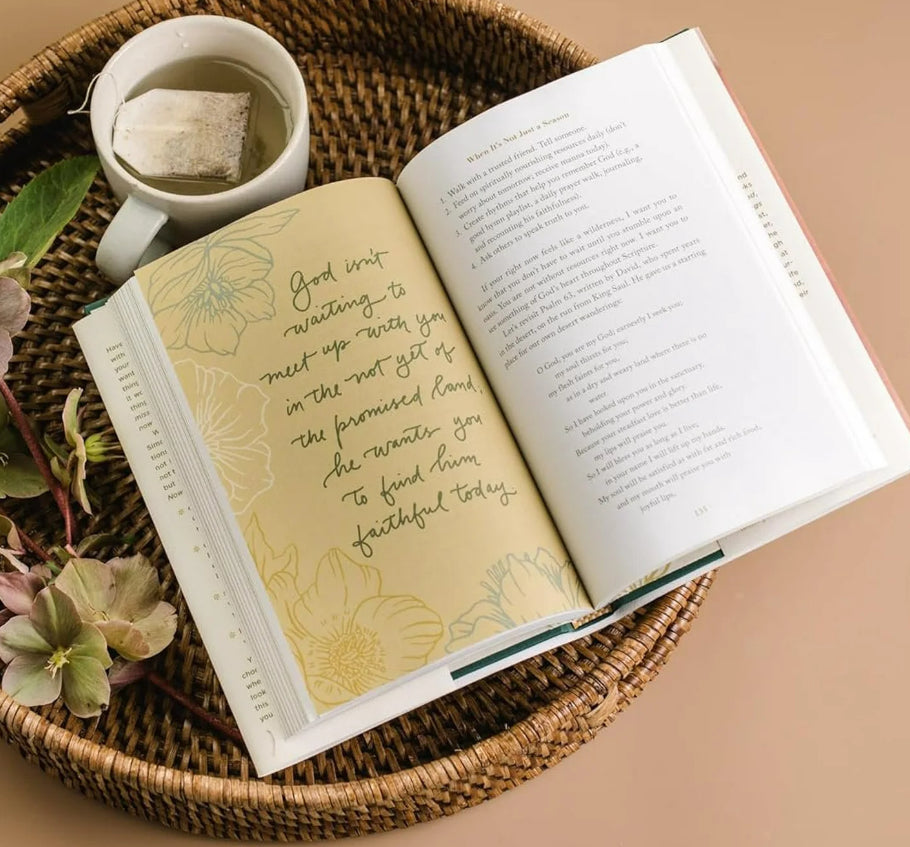 God isn't
waiting to
meet up with you
in the not yet of
the promised land,
he wants you
to find him
faithful today
When It's Not Just a Season
1. Walk with a trusted friend. Tell someone.
2. Feed on spiritually nourishing resources daily (don't
worry about tomorrow, receive manna today).
3. Create rhythms that help you remember God (e.g., a
good hymn playlist, a daily prayer walk, journaling,
and recounting his faithfulness).
4. Ask others to speak truth to you.
If your right now feels like a wilderness, I want you to
know that you don't have to wait until you stumble upon an
oasis. You are not without resources right now. I want you to
see something of God's heart throughout Scripture.
Let's revisit Psalm 63, written by David, who spent years
in the desert, on the run from King Saul. He gave us a starting
place for our own desert wanderings:
O God, you are my God; earnestly I seek you;
my soul thirsts for you;
my flesh faints for you,
as in a dry and weary land where there is no
water.
So I have looked upon you in the sanctuary,
beholding your power and glory.
Because your steadfast love is better than life,
my lips will praise you.
So I will bless you as long as I live;
in your name I will lift up my hands.
My soul will be satisfied as with fat and rich food,
and my mouth will praise you with
joyful lips,
135
Have
with
your
want
thing
it wo
thing
now
Now
Y
when
look
this
you